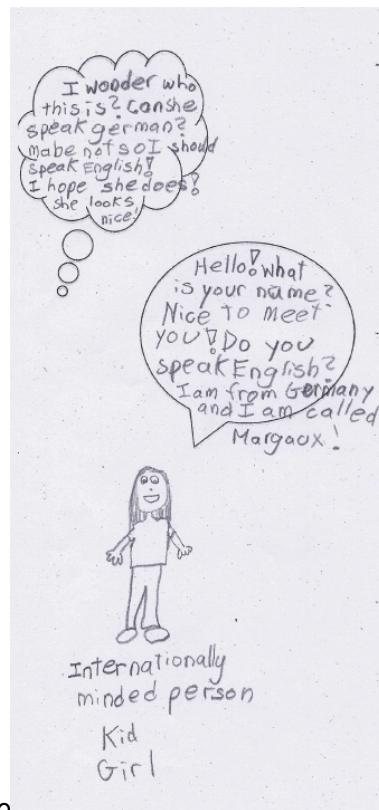 I wonder who
this is? Can she
speak german?
mabe not so I should
speak English!
I hope she does!
she looks
nice!
Hello! what
is your name?
Nice to meet
you! Do you
speak English?
I am from Germany
and I am called
Margaux!
Internationally
minded person
Kid
Girl